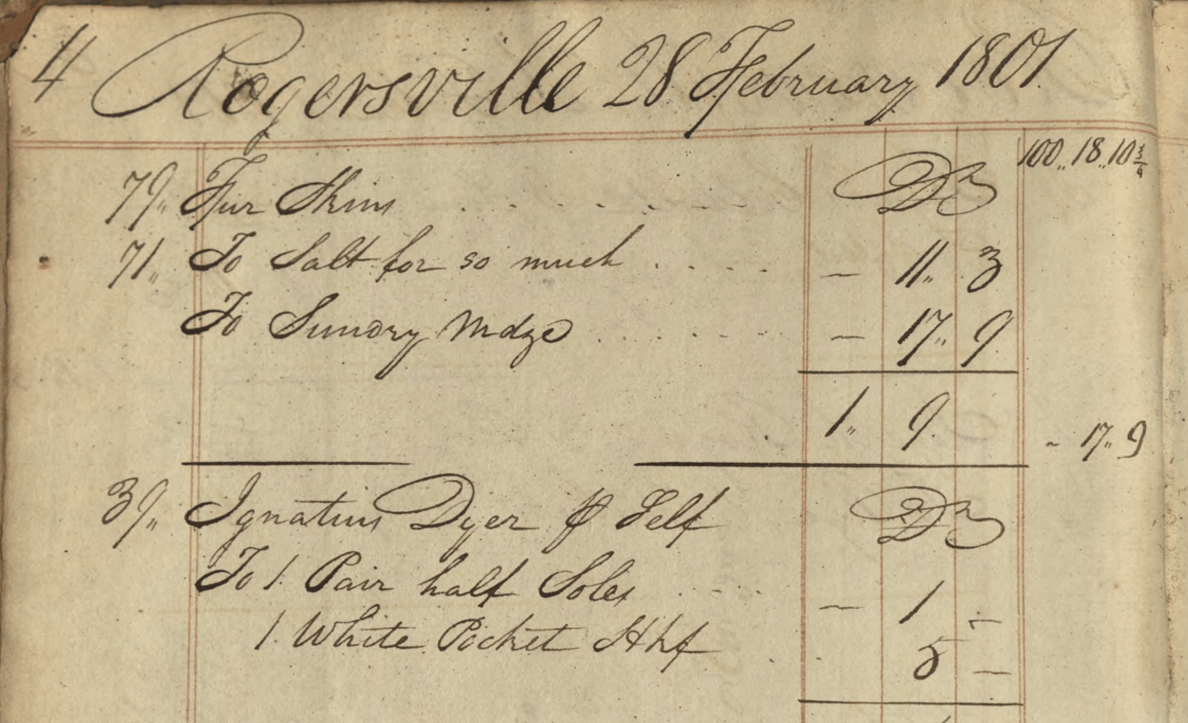 4 Rogersville 28 February 1801.
100,, 18,, 10 3/4
79,, Fur Skins . . . . . . . Dr
71,, To Salt for so much . . . . — 11,, 3
To Sundry Mdze . . . . . . — 17,, 9
1,, 9. - 17,, 9
39,, Ignatius Dyer ⅌ Self Dr
To 1 Pair half Soles . . . . — 1 –
1 White Pocket Hkf . . 5 —